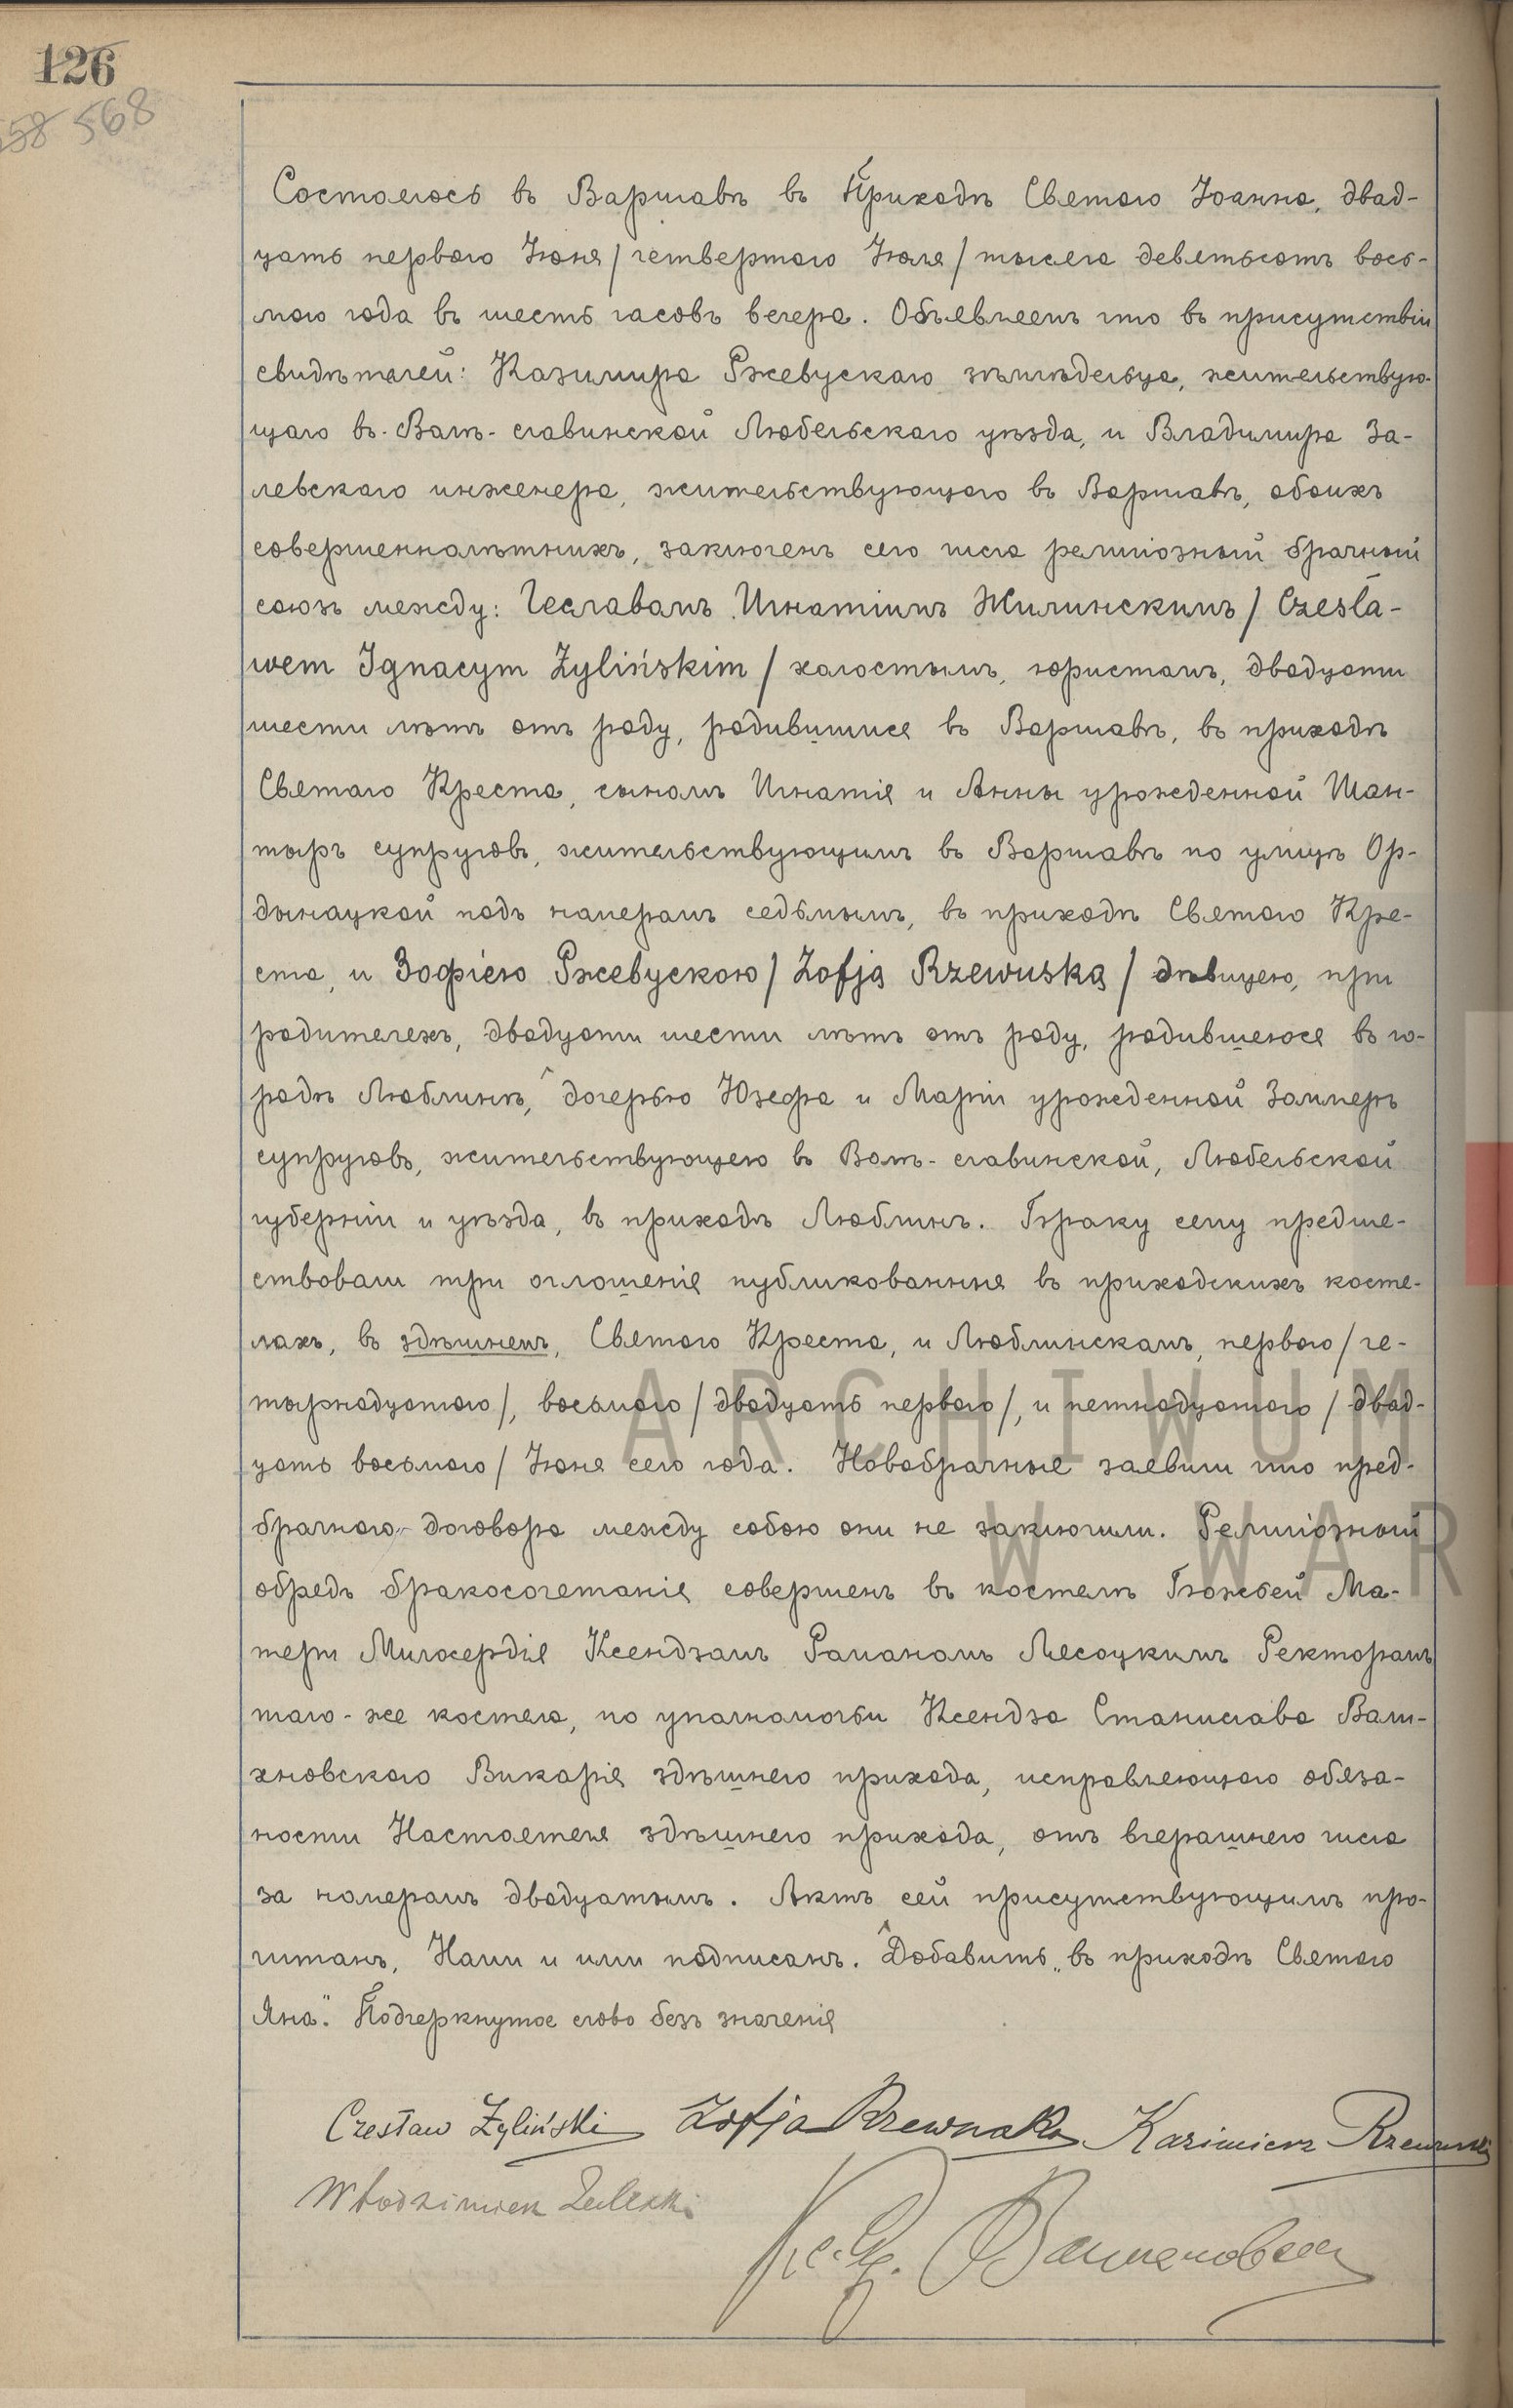 126
558 568
Состоялось въ Варшавѣ въ Приходѣ Святаго Іоанна, двад-
цать перваго Іюня / четвертаго Іюля / тысяча девятьсотъ вось-
маго года въ шесть часовъ вечера. Объявляемъ что въ присутствіи
свидѣтелей: Казимира Ржевускаго землѣдельца, жительствую-
щаго въ Воли-славинской Любельскаго уѣзда, и Владимира За-
левскаго инженера, жительствующаго въ Варшавѣ, обоихъ
совершеннолѣтнихъ, заключенъ сего числа религіозный брачный
союзъ между: Чеславомъ Игнатіемъ Жилинскимъ / Czesła-
wem Ignacym Żylińskim / холостымъ, юристомъ, двадцати
шести лѣтъ отъ роду, родившимся въ Варшавѣ, въ приходѣ
Святаго Креста, сыномъ Игнатія и Анны урожденной Шан-
тыръ супруговъ, жительствующимъ въ Варшавѣ по улицѣ Ор-
дынацкой подъ номеромъ седьмымъ, въ приходѣ Святаго Кре-
ста, и Зофіею Ржевускою / Zofją Rzewuską / дѣвицею, при
родителяхъ, двадцати шести лѣтъ отъ роду, родившеюся въ го-
родѣ Люблинѣ, дочерью Юзефа и Маріи урожденной Заммеръ
супруговъ, жительствующею въ Воли-славинской, Любельской
губерніи и уѣзда, въ приходѣ Люблинъ. Браку сему предше-
ствовали три оглошенія публикованныя въ приходскихъ косте-
лахъ, въ здѣшнемъ, Святаго Креста, и Люблинскомъ, перваго / че-
тырнадцатаго /, восьмаго / двадцать перваго /, и пятнадцатаго / двад-
цать восьмаго / Іюня сего года. Новобрачные заявили что пред-
брачнаго договора между собою они не заключили. Религіозный
обрядъ бракосочетанія совершенъ въ костелѣ Божьей Ма-
тери Милосердія Ксендзомъ Романомъ Лесоцкимъ Ректоромъ
того-же костела, по уполномочьи Ксендза Станислава Вали-
хновскаго Викарія здѣшняго прихода, исправляющаго обяза-
ности Настоятеля здѣшняго прихода, отъ вчерашняго числа
за номеромъ двадцатымъ. Актъ сей присутствующимъ про-
читанъ, Нами и ими подписанъ. Добавить „въ приходѣ Святаго
Яна." Подчеркнутое слово безъ значенія
Czesław Żyliński Zofja Rzewuska Kazimierz Rzewuski
Włodzimierz Zaleski
ARCHIWUM
W WAR